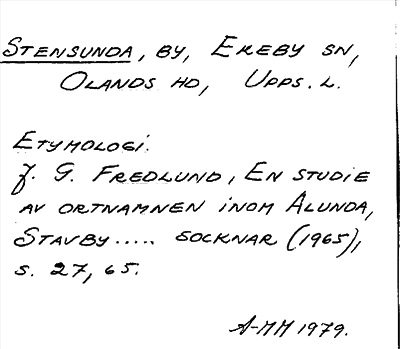 STENSUNDA, BY, EKEBY SN,
OLANDS HD, UPPS. L.
ETYMOLOGI.
J. G. FREDLUND, EN STUDIE
AV ORTNAMNEN INOM ALUNDA,
STAVBY..... SOCKNAR (1965),
S. 27, 65.
A-MM 1979.